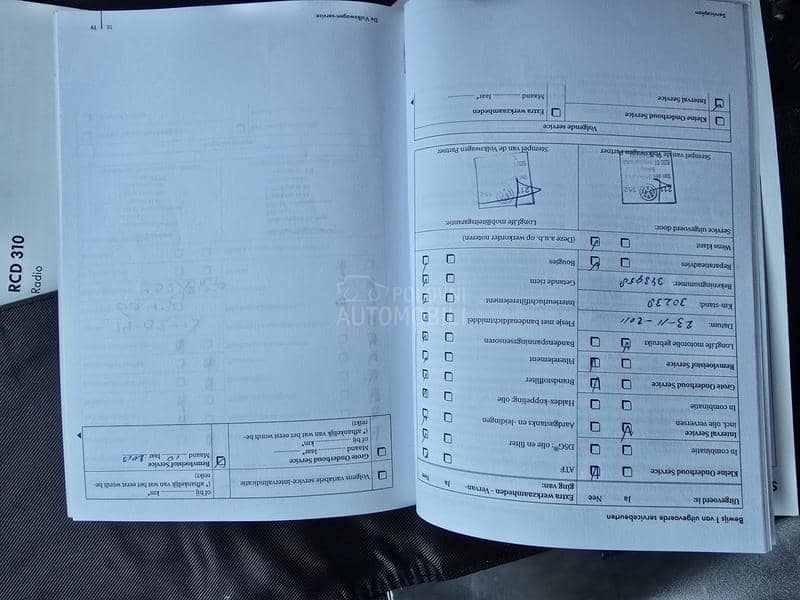 Serviceplan
Bewijs 1 van uitgevoerde servicebeurten
Uitgevoerd is:
Ja
Nee
Kleine Onderhoud Service
In combinatie
Interval Service
incl. olie verversen
In combinatie
Grote Onderhoud Service
Remvloeistof Service
LongLife motorolie gebruikt
Datum: 23-11-2011
Km-stand: 30239
Rekeningnummer:
Reparatieadvies
Wens klant
Service uitgevoerd door:
Stempel van de Volkswagen Partner
Extra werkzaamheden - Vervan-
ging van:
Ja
Nee
ATF
DSG®: olie en filter
Aandrijfstangen
Haldex-koppeling: olie
Brandstoffilter
Filterelement
Bandenspanningssensoren
Flesje met bandenafdichtmiddel
Interieurluchtfilterelement
Getande riem
Bougies
(Deze a.u.b. op werkorder noteren)
LongLife mobiliteitsgarantie:
Stempel van de Volkswagen Partner
Volgende service
Kleine Onderhoud Service
Interval Service
Extra werkzaamheden
Maand Jaar*
Volgens variabele service-intervalindicatie
Grote Onderhoud Service
Maand Jaar*
of bij km*
(* afhankelijk van wat het eerst wordt be-
reikt)
Remvloeistof Service
Maand 10 Jaar 2013
of bij km*
(* afhankelijk van wat het eerst wordt be-
reikt)
De Volkswagen-service
19
RCD 310
Radio
POLOVNI
AUTOMOBILI